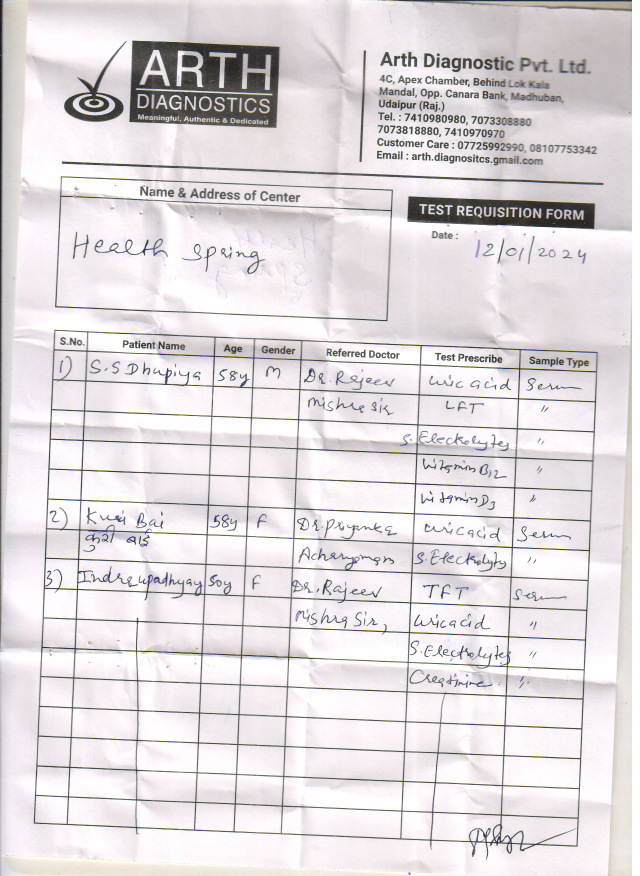 ARTH
DIAGNOSTICS
Meaningful, Authentic & Dedicated
Arth Diagnostic Pvt. Ltd.
4C, Apex Chamber, Behind Lok Kala
Mandal, Opp. Canara Bank, Madhuban,
Udaipur (Raj.)
Tel. : 7410980980, 7073308880
7073818880, 7410970970
Customer Care : 07725992990, 08107753342
Email : arth.diagnositcs.gmail.com
Name & Address of Center
TEST REQUISITION FORM
Health Spring
Date : 12/01/2024
S.No. Patient Name Age Gender Referred Doctor Test Prescribe Sample Type
1) S.S Dhupiya 58y M Dr. Rajeev uric acid Serum
Mishra Sir LFT "
S. Electrolytes "
Vitamin B12 "
Vitamin D3 "
2) Bai 58y F Dr. Priyanka uric acid Serum
बाई S. Electrolyty "
3) Indra upadhyay 50y F Dr. Rajeev TFT Serum
Mishra Sir, uric acid "
S. Electrolytes "
Creatinine "